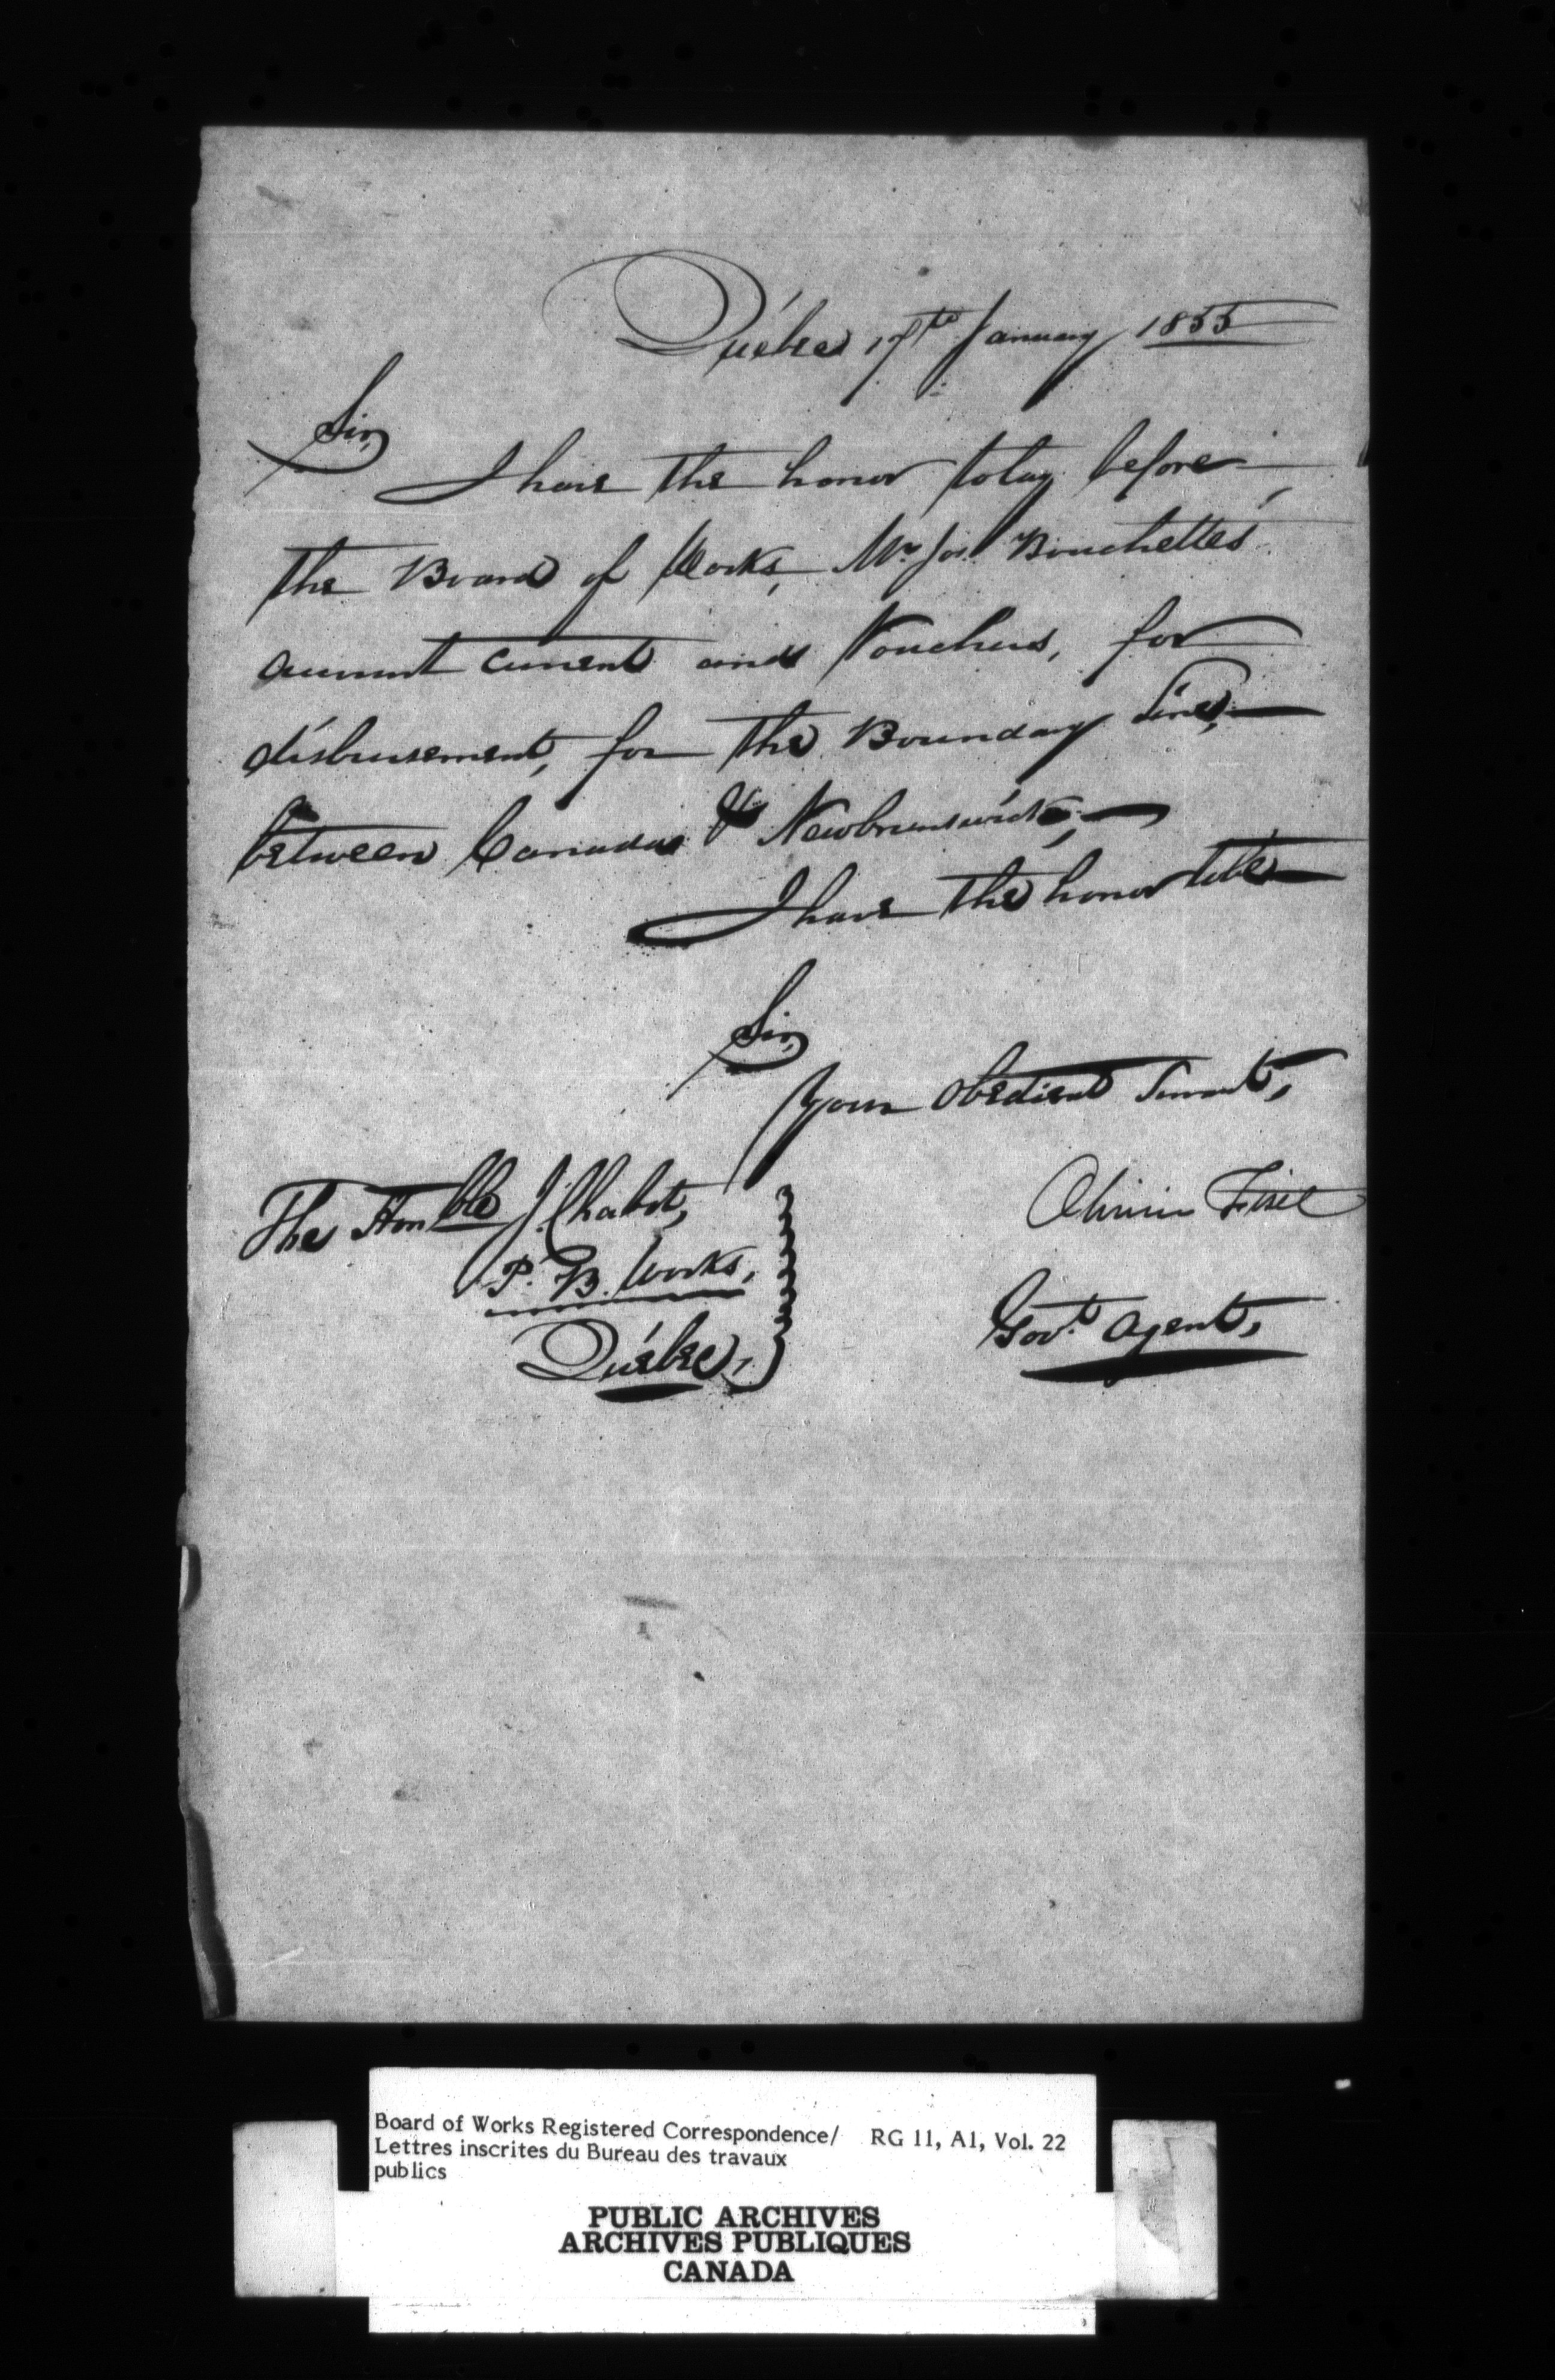 Québec 17th January 1855
Sir,
I have the honor to lay before
the Board of Works, Mr. Jos. Bouchette's
account current and Vouchers, for
disbursement, for the Boundary Line,
between Canada & Newbrunswick,
I have the honor to be
Sir,
Your Obedient Servant,
The Honble J. Chabot,
P. B. Works,
Québec,
Olivier Fiset
Govt. Agent,
Board of Works Registered Correspondence/ RG 11, A1, Vol. 22
Lettres inscrites du Bureau des travaux
publics
PUBLIC ARCHIVES
ARCHIVES PUBLIQUES
CANADA